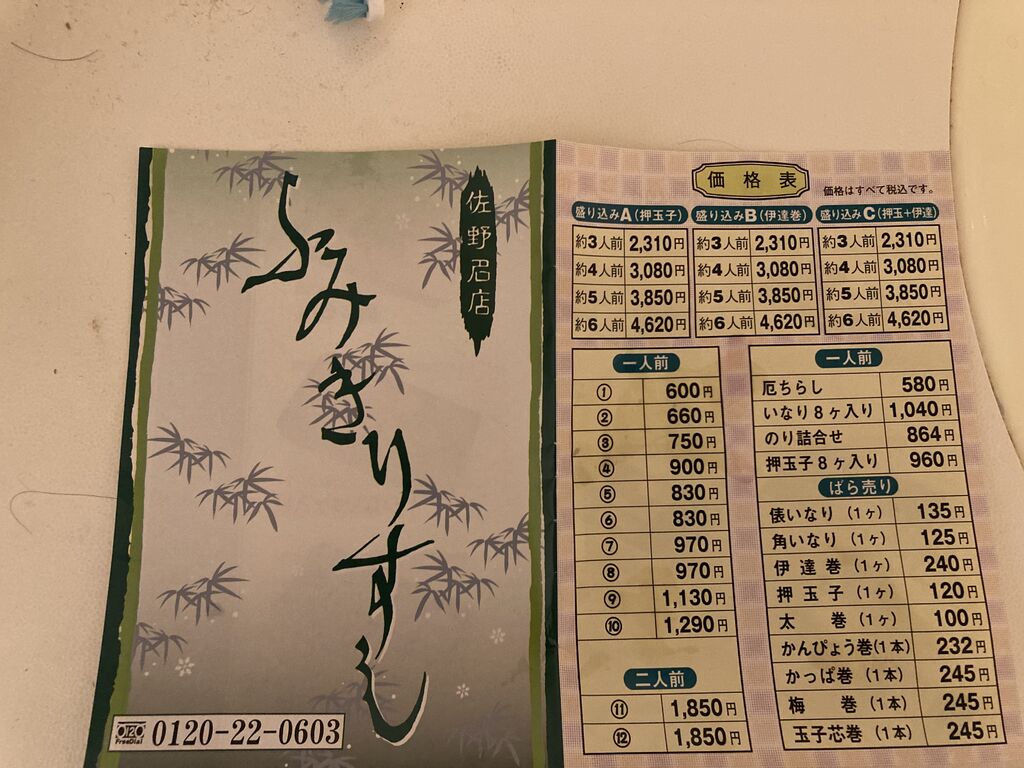 佐野名店
ふみきりすし
FreeDial 0120-22-0603
価格表
価格はすべて税込です。
盛り込みA(押玉子)
約3人前 2,310円
約4人前 3,080円
約5人前 3,850円
約6人前 4,620円
盛り込みB(伊達巻)
約3人前 2,310円
約4人前 3,080円
約5人前 3,850円
約6人前 4,620円
盛り込みC(押玉+伊達)
約3人前 2,310円
約4人前 3,080円
約5人前 3,850円
約6人前 4,620円
一人前
① 600円
② 660円
③ 750円
④ 900円
⑤ 830円
⑥ 830円
⑦ 970円
⑧ 970円
⑨ 1,130円
⑩ 1,290円
二人前
⑪ 1,850円
⑫ 1,850円
一人前
厄ちらし 580円
いなり8ヶ入り 1,040円
のり詰合せ 864円
押玉子8ヶ入り 960円
ばら売り
俵いなり(1ヶ) 135円
角いなり(1ヶ) 125円
伊達巻(1ヶ) 240円
押玉子(1ヶ) 120円
太巻(1ヶ) 100円
かんぴょう巻(1本) 232円
かっぱ巻(1本) 245円
梅巻(1本) 245円
玉子芯巻(1本) 245円